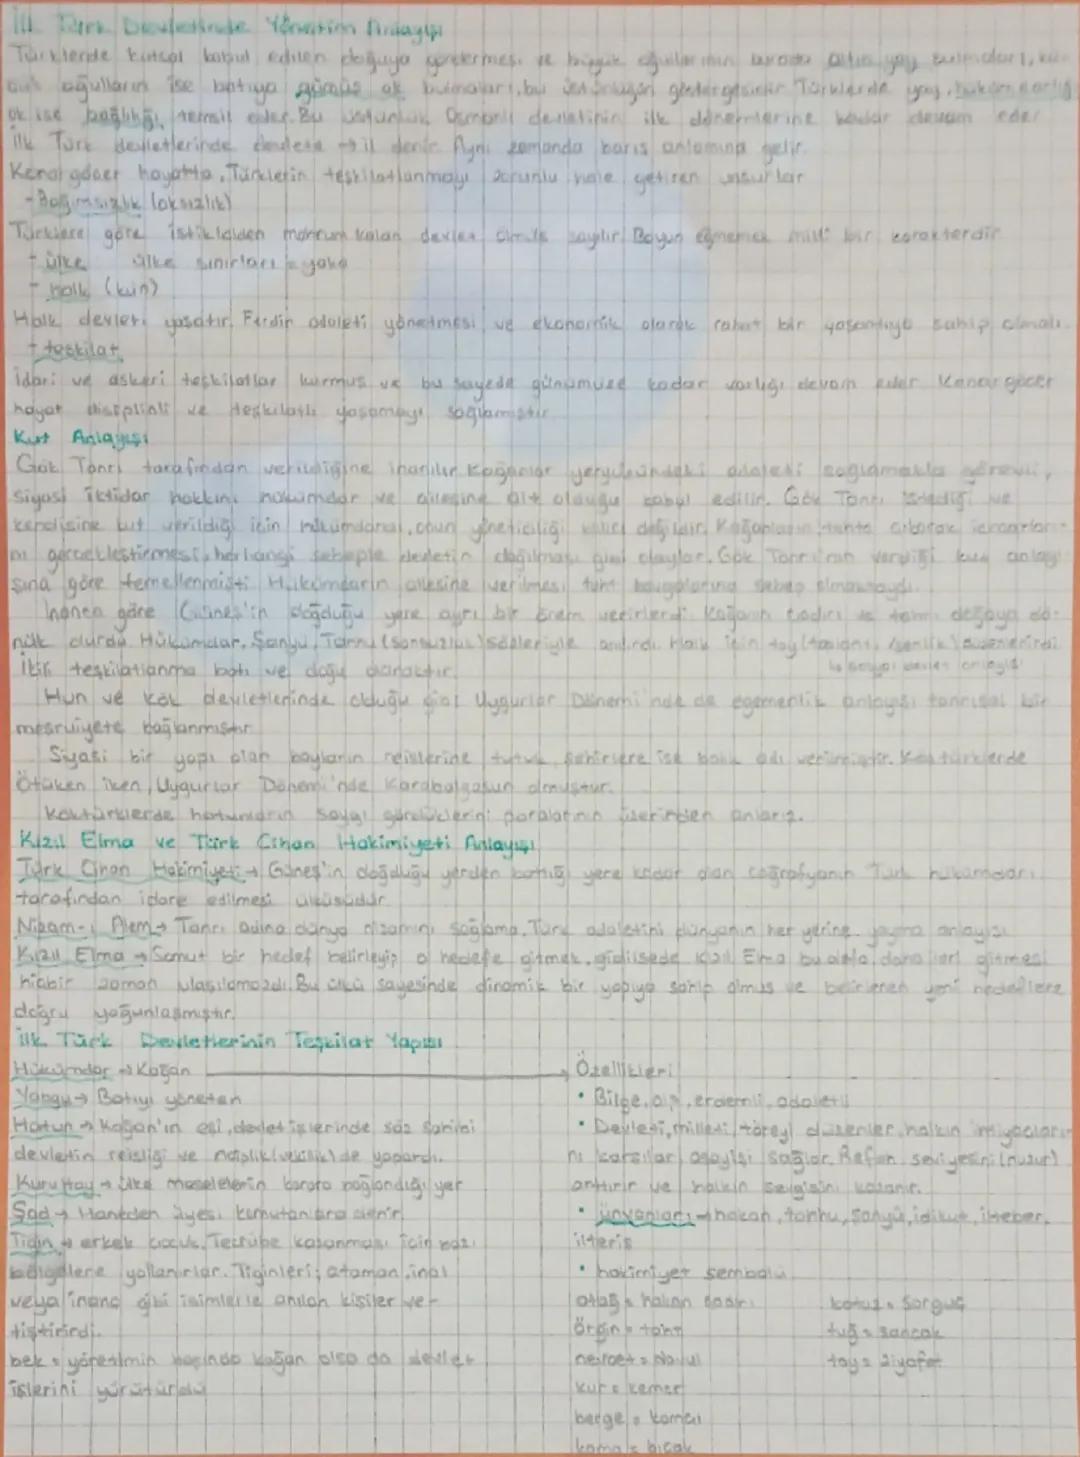 İlk Türk Devletlerinde Yönetim Anlayışı
Türklerde kutsal kabul edilen doğuya göndermesi ve büyük oğullarının burada altın yay bulmaları, kü-
çük oğulların ise batıya gümüş ok bulmaları, bu üstünlüğün göstergesidir. Türklerde yay, hükümdarlığı
ok ise bağlılığı temsil eder. Bu üstünlük Osmanlı devletinin ilk dönemlerine kadar devam eder
İlk Türk devletlerinde devlete → il denir. Aynı zamanda barış anlamına gelir.
Konar göçer hayatta, Türklerin teşkilatlanmayı zorunlu hale getiren unsurlar
- Bağımsızlık (oksızlık)
Türklere göre istiklalden mahrum kalan devlet ölmüş sayılır. Boyun eğmemek milli bir karakterdir
- ülke ülke sınırları = yaka
- halk (kün)
Halk devleti yaşatır. Ferdin adaleti yönetmesi ve ekonomik olarak rahat bir yaşantıya sahip olmalı.
- teşkilat
İdari ve askeri teşkilatlar kurmuş ve bu sayede günümüze kadar varlığı devam eder. Konar göçer
hayat disiplinli ve teşkilatlı yaşamayı sağlamıştır.
Kut Anlayışı
Gök Tanrı tarafından verildiğine inanılır. Kağanlar yeryüzündeki adaleti sağlamakla görevli,
siyasi iktidar hakkını hükümdar ve ailesine ait olduğu kabul edilir. Gök Tanrı istediği ve
kendisine kut verildiği için hükümdarai, yöneticiliği kalıcı değildir. Kağanların tahta çıkarak icraatları-
nı gerçekleştirmesi, herhangi sebeple devletin dağılması gibi olaylar. Gök Tanrı'nın verdiği kut anlayı-
şına göre temellenmişti. Hükümdarın ailesine verilmesi taht kavgalarına sebep olmaktaydı.
İnanca göre Güneş'in doğduğu yere ayrı bir önem verirlerdi. Kağanın çadırı da tahtı doğuya dö-
nük olurdu. Hükümdar, Şanyu, Tanhu (sonsuzluk) sözleriyle anılırdı. Halk için toy (toplantı, şenlik) düzenlenirdi.
↳ sosyal devlet anlayışı
İkili teşkilatlanma batı ve doğu olmaktır.
Hun ve Kök devletlerinde olduğu gibi Uygurlar Dönemi'nde de egemenlik anlayışı tanrısal bir
meşruiyete bağlanmıştır.
Siyasi bir yapı olan boyların reislerine tutuk, şehirlere ise balık adı verilmiştir. Köktürklerde
Ötüken iken, Uygurlar Dönemi'nde Karabalgasun olmuştur.
Köktürklerde hatunların saygı gördüklerini paralarının üzerinden anlarız.
Kızıl Elma ve Türk Cihan Hakimiyeti Anlayışı
Türk Cihan Hakimiyeti → Güneş'in doğduğu yerden battığı yere kadar olan coğrafyanın Türk hükümdarı
tarafından idare edilmesi ülküsüdür
Nizam-ı Alem → Tanrı adına dünya nizamını sağlama. Türk adaletini dünyanın her yerine yayma anlayışı
Kızıl Elma → Somut bir hedef belirleyip o hedefe gitmek, gidilsede Kızıl Elma bu defa, daha ileri gitmesi
hiçbir zaman ulaşılamazdı. Bu ülkü sayesinde dinamik bir yapıya sahip olmuş ve belirlenen yeni hedeflere
doğru yoğunlaşmıştır.
İlk Türk Devletlerinin Teşkilat Yapısı
Hükümdar → Kağan → Özellikleri
Yabgu → Batıyı yöneten
Hatun → Kağan'ın eşi, devlet işlerinde söz sahibi
devletin reisliği ve naiplik (vekillik) de yapardı.
Kurultay → ülke meselelerin karara bağlandığı yer
Şad → Haneden üyesi komutanlara denir
Tigin → erkek çocuk. Tecrübe kazanması için bazı
bölgelere yollanırlar. Tiginleri; ataman, inal
veya inanç gibi isimlerle anılan kişiler ye-
tiştirirdi.
bek = yönetimin başında kağan olsa da devlet
işlerini yürütürdü
• Bilge, alp, erdemli, adaletli
• Devleti, milleti, töreyi düzenler, halkın ihtiyaçları-
nı karşılar, asayişi sağlar. Refah seviyesini (huzur)
arttırır ve halkın sevgisini kazanır.
• ünvanları → hakan, tanhu, şanyü, idikut, ilteber,
ilteriş
• hakimiyet sembolü
otağ = hakan çadırı
örgin = taht
nevbet = davul
kur = kemer
berge = kamçı
kama = bıçak
kotuz = Sorguç
tuğ = sancak
toy = ziyafet